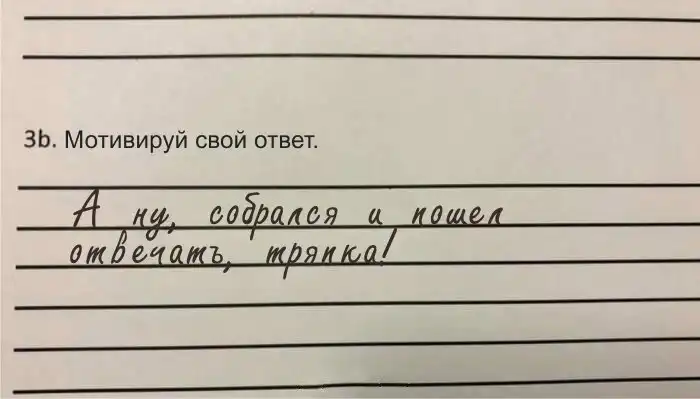 3b. Мотивируй свой ответ.
А ну, собрался и пошел
отвечать, тряпка!